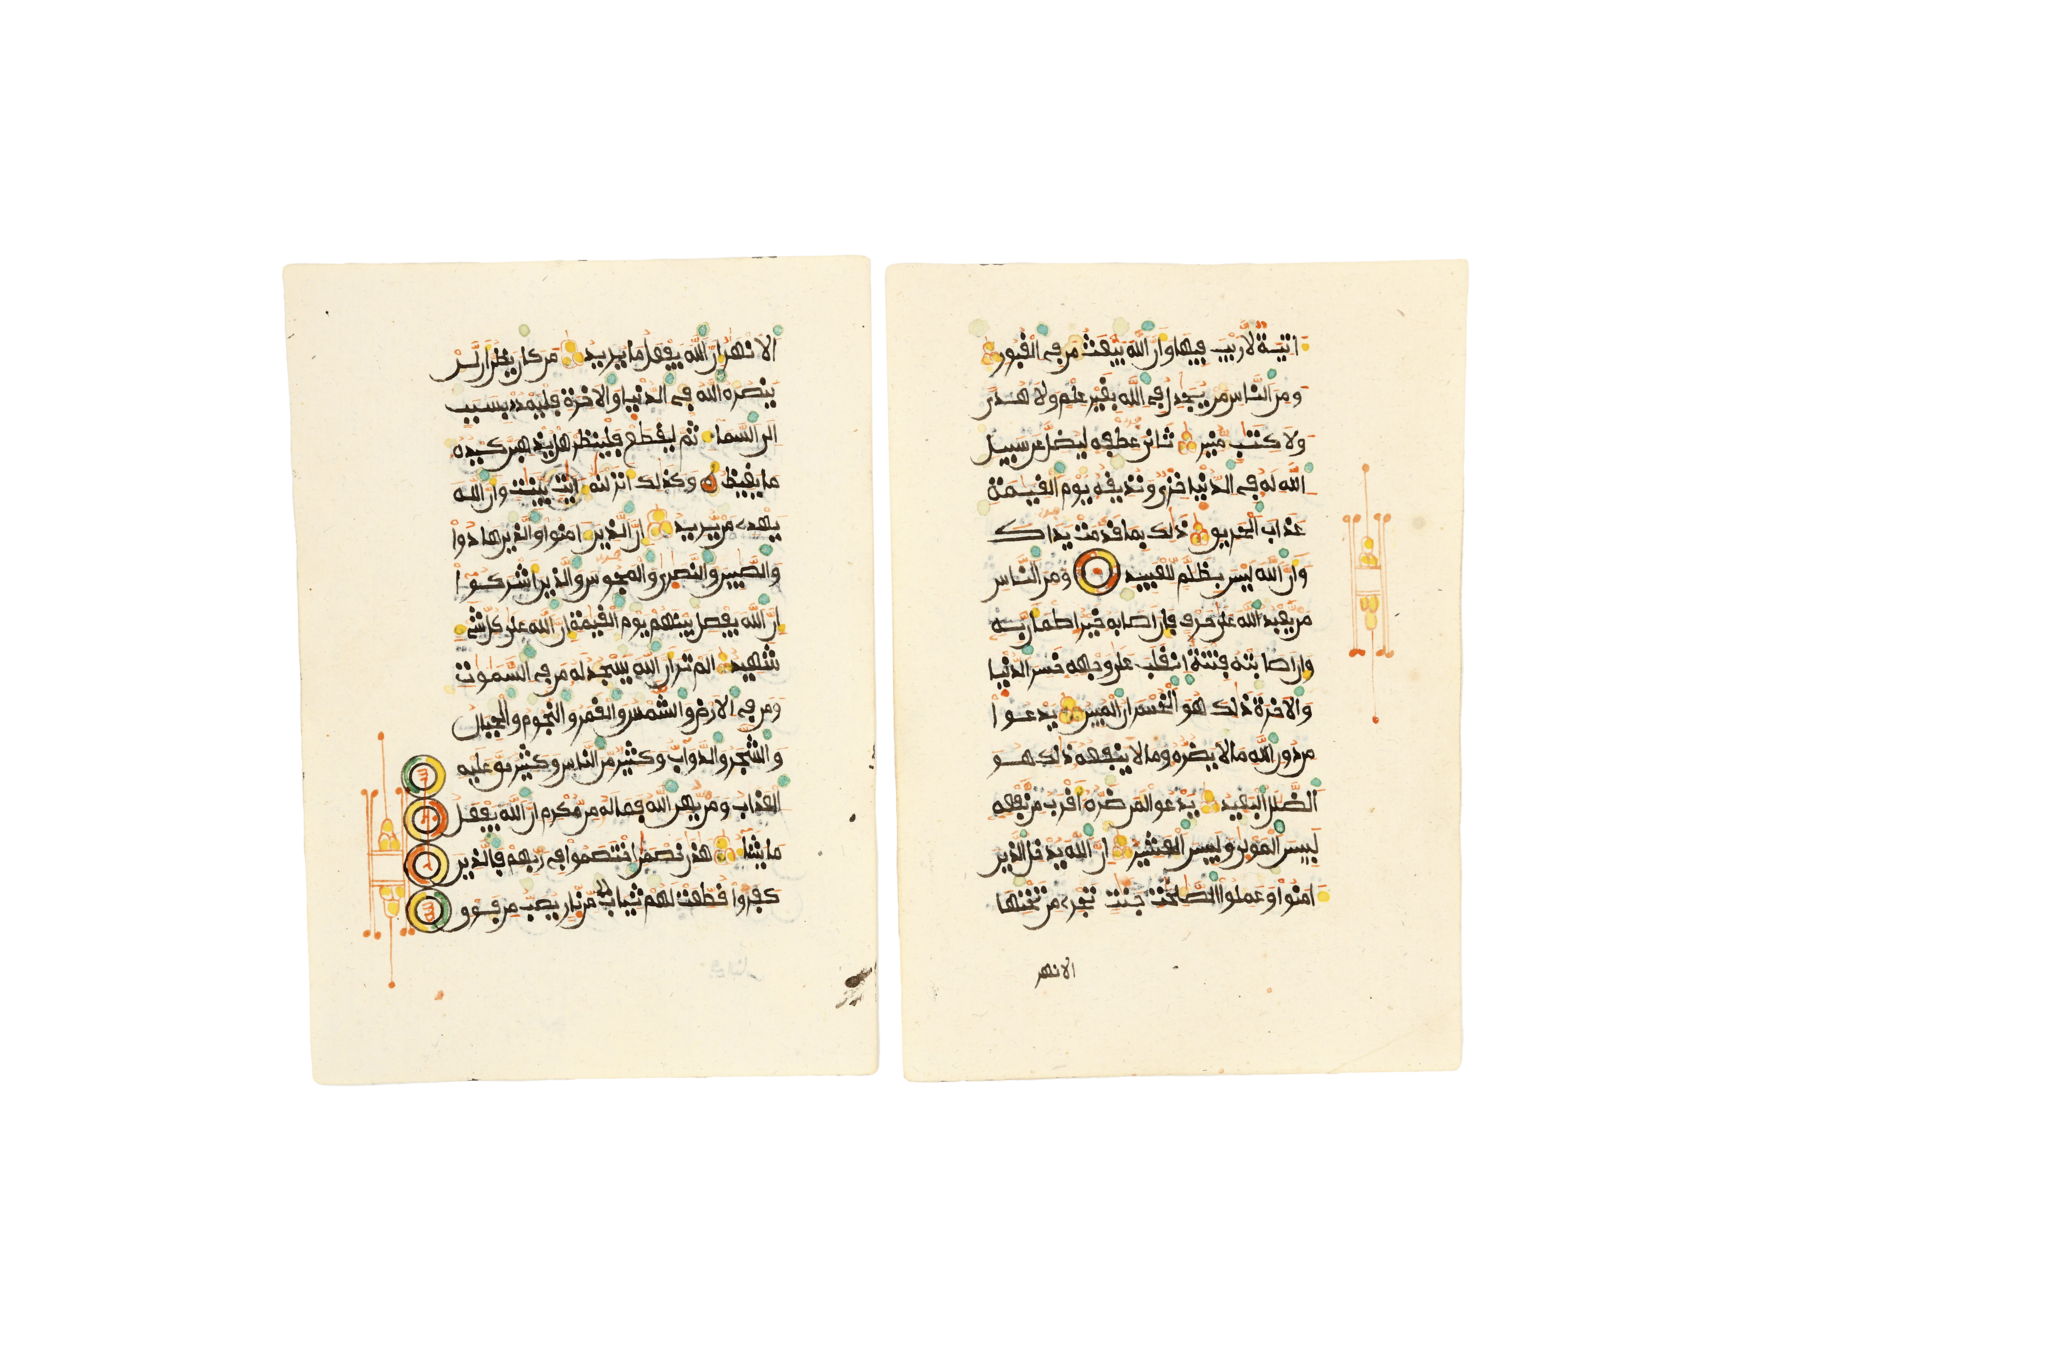 اتية لا ريب فيها وان الله يبعث من في القبور
ومن الناس من يجدل في الله بغير علم ولا هدى
ولا كتب منير ثاني عطفه ليضل عن سبيل
الله له في الدنيا خزي ونذيقه يوم القيمة
عذاب الحريق ذلك بما قدمت يداك
وان الله ليس بظلم للعبيد ومن الناس
من يعبد الله على حرف فان اصابه خير اطمان به
وان اصابته فتنة انقلب على وجهه خسر الدنيا
والاخرة ذلك هو الخسران المبين يدعوا
من دون الله ما لا يضره وما لا ينفعه ذلك هو
الضلل البعيد يدعوا لمن ضره اقرب من نفعه
لبيس المولى ولبيس العشير ان الله يدخل الذين
امنوا وعملوا الصلحت جنت تجري من تحتها
الانهر
الانهر ان الله يفعل ما يريد من كان يظن ان لن
ينصره الله في الدنيا والاخرة فليمدد بسبب
الى السما ثم ليقطع فلينظر هل يذهبن كيده
ما يغيظ وكذلك انزلنه ايت بينت وان الله
يهدي من يريد ان الذين امنوا والذين هادوا
والصبين والنصرى والمجوس والذين اشركوا
ان الله يفصل بينهم يوم القيمة ان الله على كل شي
شهيد الم تر ان الله يسجد له من في السموت
ومن في الارض والشمس والقمر والنجوم والجبال
والشجر والدواب وكثير من الناس وكثير حق عليه
العذاب ومن يهن الله فما له من مكرم ان الله يفعل
ما يشا هذن خصمن اختصموا في ربهم فالذين
كفروا قطعت لهم ثياب من نار يصب من فوق